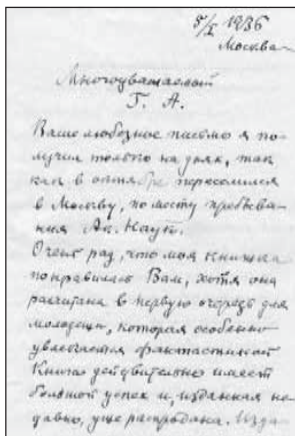 8/I 1936
Москва
Многоуважаемый
Г. А.
Ваше любезное письмо я по-
лучил только на днях, так
как в октябре переселился
в Москву, по месту пребыва-
ния Ак. Наук.
Очень рад, что моя книжка
понравилась Вам, хотя она
расчитана в первую очередь для
молодежи, которая особенно
увлекается фантастикой
Книга действительно имеет
большой успех и, изданная не-
давно, уже распродана. Изда-